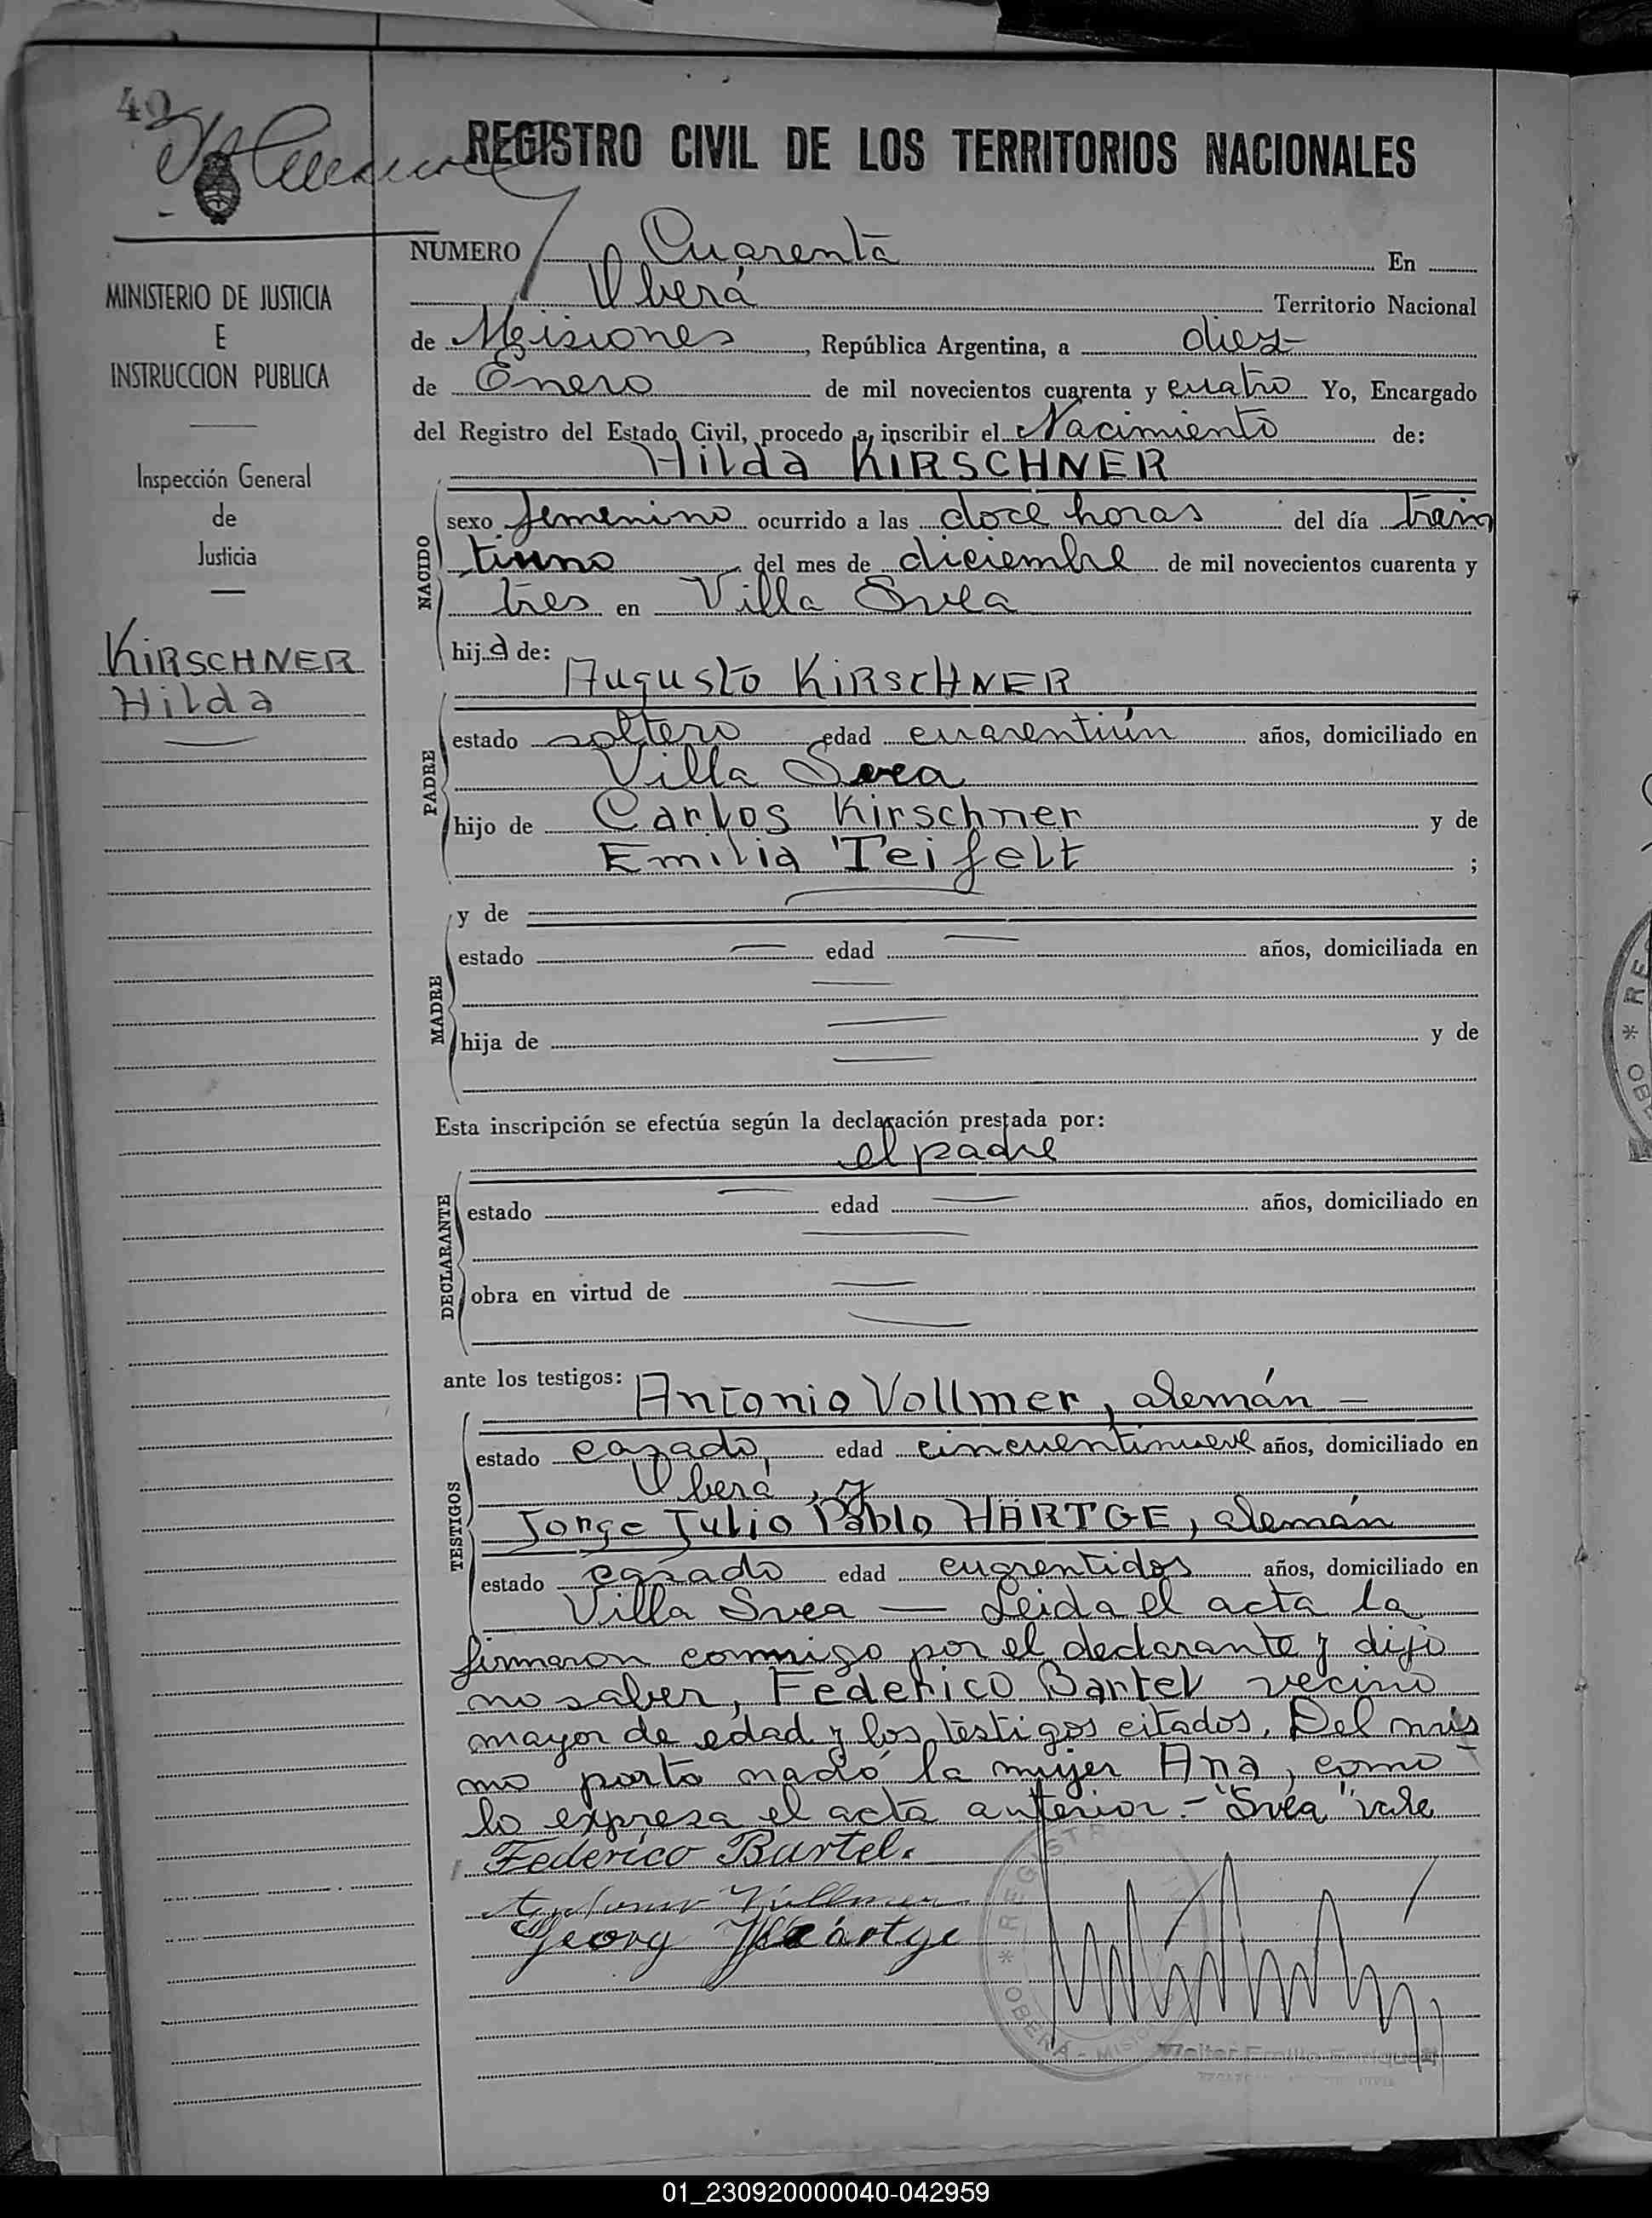 40
REGISTRO CIVIL DE LOS TERRITORIOS NACIONALES
MINISTERIO DE JUSTICIA
E
INSTRUCCION PUBLICA
Inspección General
de
Justicia
KIRSCHNER
Hilda
NUMERO Cuarenta En
Oberá Territorio Nacional
de Misiones, República Argentina, a diez
de Enero de mil novecientos cuarenta y cuatro Yo, Encargado
del Registro del Estado Civil, procedo a inscribir el Nacimiento de:
Hilda KIRSCHNER
NACIDO
sexo femenino ocurrido a las doce horas del día trein
tiuno del mes de diciembre de mil novecientos cuarenta y
tres en Villa Svea
hija de:
Augusto KIRSCHNER
PADRE
estado soltero edad cuarentiún años, domiciliado en
Villa Svea
hijo de Carlos Kirschner y de
Emilia Teifelt ;
MADRE
y de
estado edad años, domiciliada en
hija de y de
Esta inscripción se efectúa según la declaración prestada por:
el padre
DECLARANTE
estado edad años, domiciliado en
obra en virtud de
ante los testigos:
Antonio Vollmer, alemán —
TESTIGOS
estado casado edad cincuentinueve años, domiciliado en
Oberá, y
Jorge Julio Pablo HÄRTGE, alemán
estado casado edad cuarentidos años, domiciliado en
Villa Svea — Leida el acta la
firmaron conmigo por el declarante y dijo
no saber, Federico Bartel vecino
mayor de edad y los testigos citados. Del mis
mo parto nació la mujer Ana, como
lo expresa el acta anterior.- "Svea" vale
Federico Bartel.
Georg Härtge
REGISTRO
OBERA - MISIONES
Walter Emilio Enriquez
01_230920000040-042959